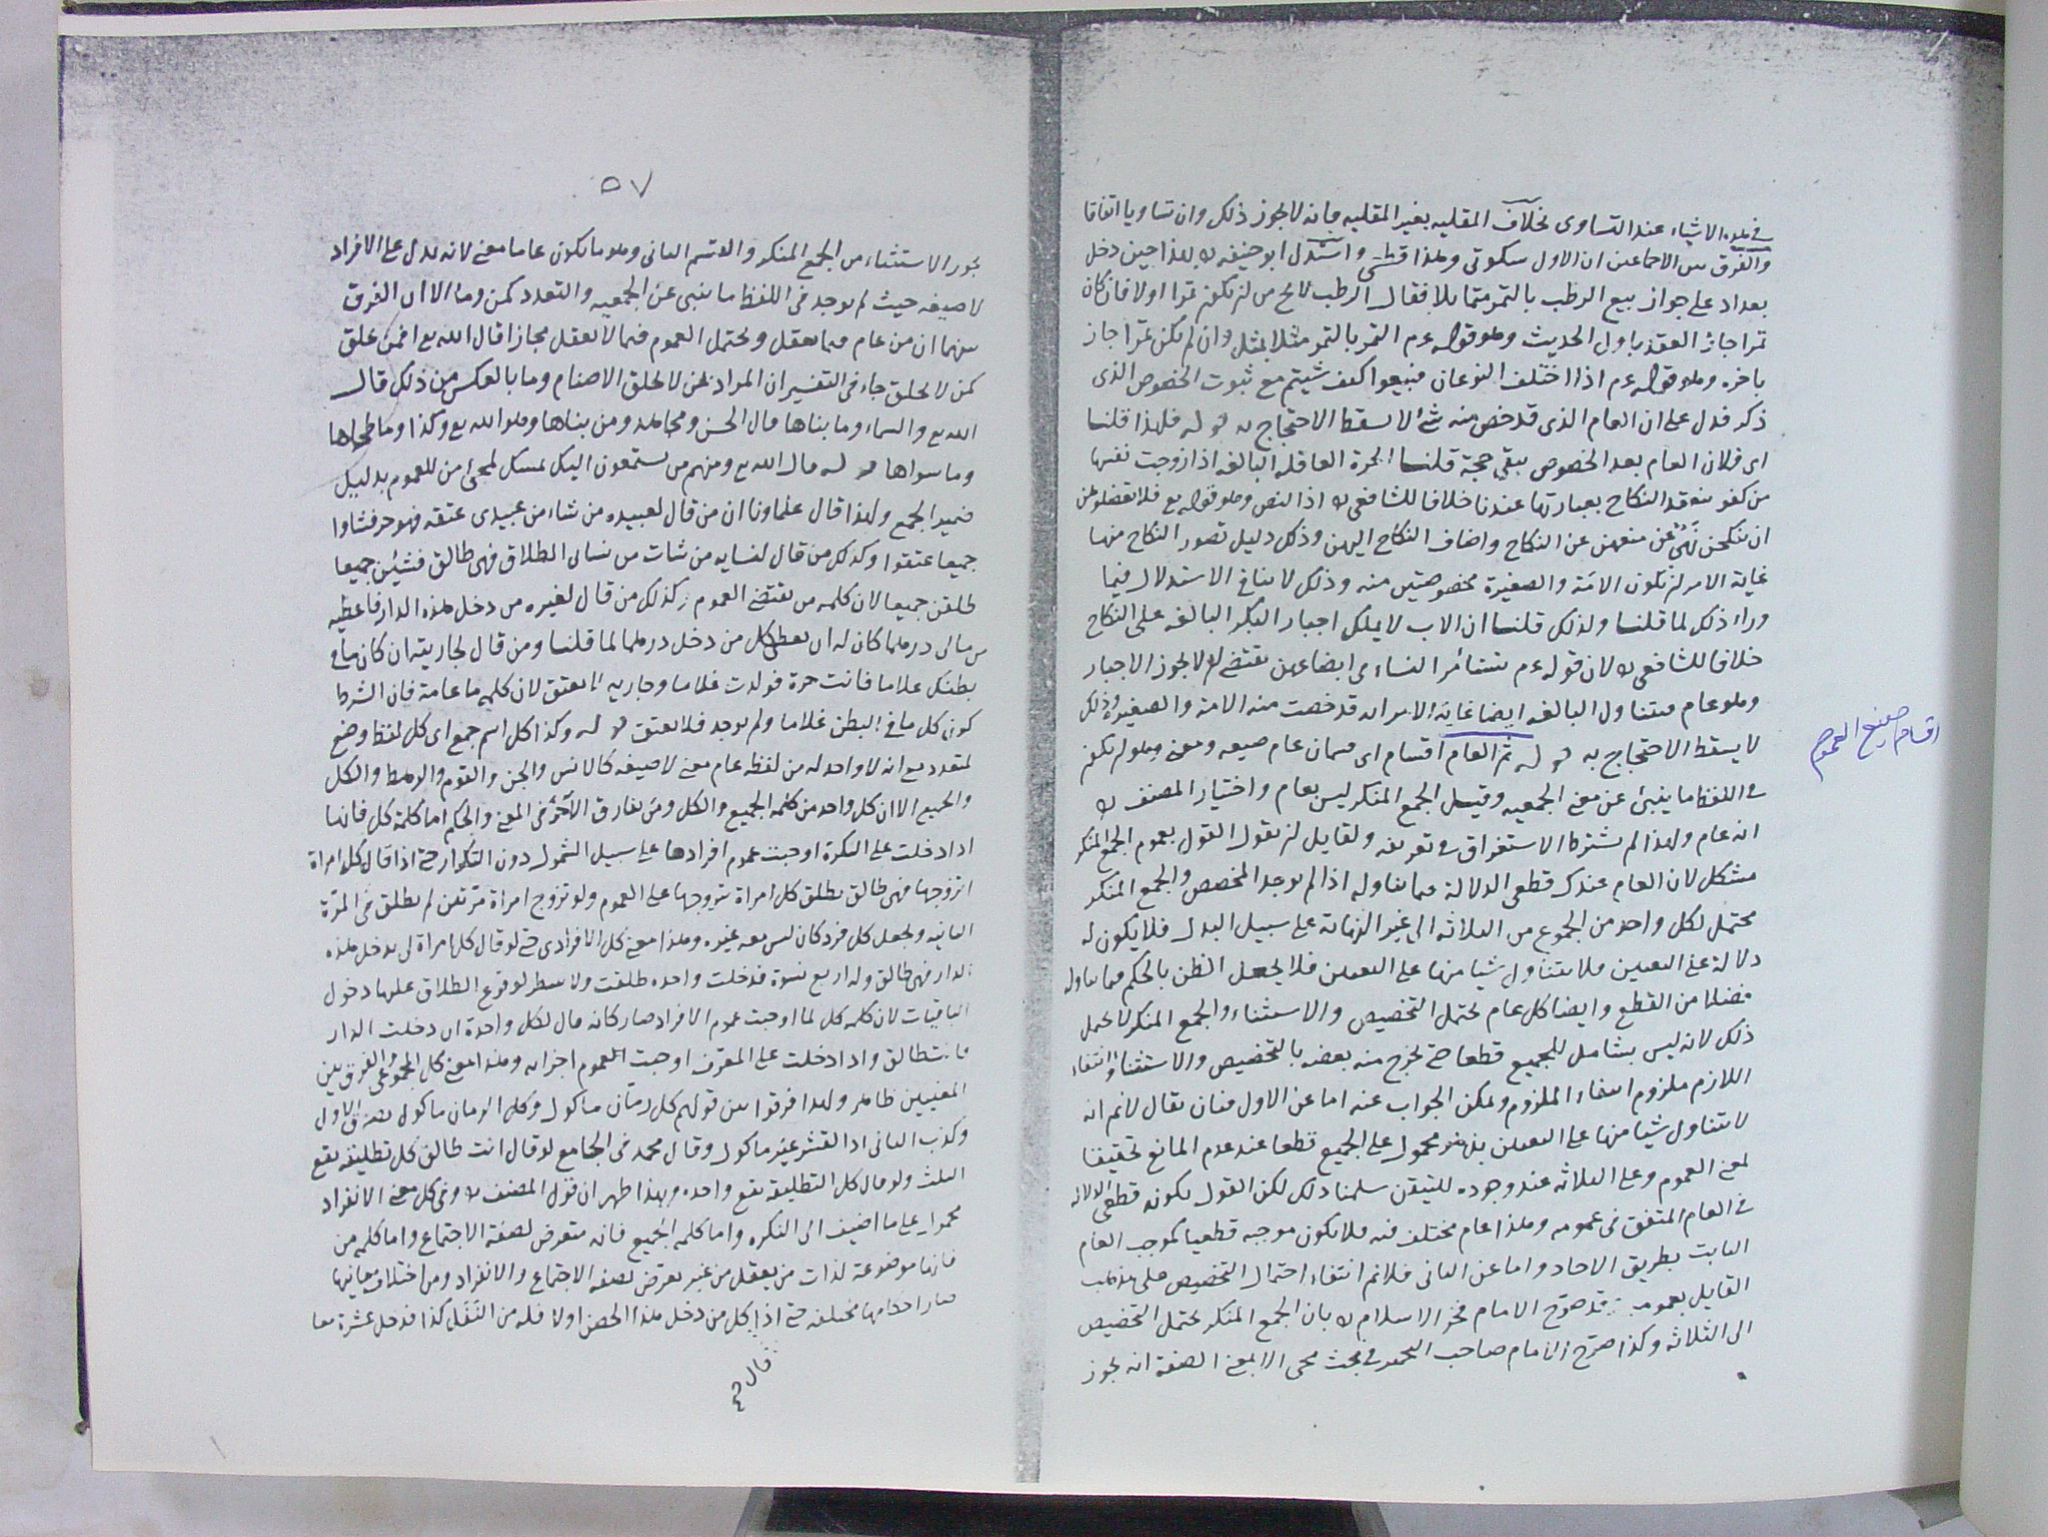 في هذه الاشياء عند التساوى بخلاف المقليه بغير المقليه فانه لا يجوز ذلك وان تساويا اتفاقا
والفرق بين الاجماعين ان الاول سكوتى وهذا قطعي واستدل ابو حنيفه بهذا حين دخل
بغداد على جواز بيع الرطب بالتمر متماثلا فقال الرطب لا يخ من ان يكون تمرا اولا فان كان
تمرا جاز العقد باول الحديث وهو قوله عم التمر بالتمر مثلا بمثل وان لم يكن تمرا جاز
باخره وهو قوله عم اذا اختلف النوعان فبيعوا كيف شيتم مع ثبوت الخصوص الذى
ذكر فدل على ان العام الذى قد خص منه شئ لا يسقط الاحتجاج به قوله فلهذا قلنا
اى فلان العام بعد الخصوص يبقى حجة قلنا الحرة العاقلة البالغه اذا زوجت نفسها
من كفو ينعقد النكاح بعبارتها عندنا خلافا للشافعى اذ النص وهو قوله تع فلا تعضلوهن
ان ينكحن نهى عن منعهن عن النكاح واضاف النكاح اليهن وذلك دليل تصور النكاح منها
غاية الامر ان يكون الامة والصغيرة مخصوصتين منه وذلك لا ينافى الاستدلال فيما
وراء ذلك لما قلنا ولذلك قلنا ان الاب لا يملك اجبار البكر البالغه على النكاح
خلافا للشافعى لان قوله عم تستأمر النساء فى ابضاعهن يقتضى ان لا يجوز الاجبار
وهو عام يتناول البالغه ايضا غاية الامر انه قد خصت منه الامة والصغيرة وذلك
لا يسقط الاحتجاج به قوله ثم العام اقسام اى قسمان عام صيغه ومعنى وهو ان يكون
فى اللفظ ما ينبئ عن معنى الجمعيه وقيل الجمع المنكر ليس بعام واختيار المصنف
انه عام ولهذا لم يشترط الاستغراق فى تعريفه ولقايل ان يقول القول بعموم الجمع المنكر
مشكل لان العام عندك قطعى الدلالة فيما تناوله اذا لم يوجد المخصص والجمع المنكر
محتمل لكل واحد من الجموع من الثلاثه الى غير النهاية على سبيل البدل فلا يكون له
دلالة على التعيين فلا يتناول شيا منها على التعيين فلا يحصل الظن بالحكم فيما تناوله
فضلا من القطع وايضا كل عام يحتمل التخصيص والاستثناء والجمع المنكر لا يحتمل
ذلك لانه ليس بشامل للجميع قطعا حتى يخرج منه بعضه بالتخصيص والاستثناء وانتفاء
اللازم ملزوم انتفاء الملزوم ويمكن الجواب عنه اما عن الاول فبان يقال لا نم انه
لا يتناول شيا منها على التعيين بل هو محمول على الجميع قطعا عند عدم المانع تحقيقا
لمعنى العموم وعلى الثلاثه عند وجوده للتيقن سلمنا ذلك لكن القول بكونه قطعى الدلاله
فى العام المتفق فى عمومه وهذا عام مختلف فيه فلا يكون موجبه قطعيا كموجب العام
الثابت بطريق الاحاد واما عن الثانى فلا نم انتفاء احتمال التخصيص على مذهب
القايل بعمومه وقد صرح الامام فخر الاسلام بان الجمع المنكر يحتمل التخصيص
الى الثلاثه وكذا صرح الامام صاحب فى بحث الا بمعنى الصفة انه يجوز
اقسام صيغ العموم
٥٧
يجوز الاستثناء من الجمع المنكر والقسم الثانى وهو ما يكون عاما معنى لانه يدل على الافراد
لا صيغه حيث لم يوجد فى اللفظ ما ينبى عن الجمعيه والتعدد كمن وما الا ان الفرق
بينهما ان من عام فيما يعقل ويحتمل العموم فيما لا يعقل مجازا قال الله تع افمن يخلق
كمن لا يخلق جاء فى التفسير ان المراد بمن لا يخلق الاصنام وما بالعكس من ذلك قال
الله تع والسماء وما بناها قال الحسن ومجاهد ومن بناها وهو الله تع وكذا وما طحاها
وما سواها قوله قال الله تع ومنهم من يستمعون اليك تمسك لمجئ من للعموم بدليل
ضمير الجمع ولهذا قال علماونا ان من قال لعبيده من شاء من عبيدى عتقه فهو حر فشاوا
جميعا عتقوا وكذلك من قال لنسايه من شات من نسائى الطلاق فهى طالق فشيئن جميعا
طلقن جميعا لان كلمه من تقتضى العموم وكذلك من قال لغيره من دخل هذه الدار فاعطيه
من مالى درهما كان له ان يعطى كل من دخل درهما لما قلنا ومن قال لجاريته ان كان ما فى
بطنك غلاما فانت حرة فولدت غلاما وجاريه لا تعتق لان كلمه ما عامة فان الشرط
كون كل ما فى البطن غلاما ولم يوجد فلا تعتق قوله وكذا كل اسم جمع اى كل لفظ وضع
لمتعدد مع انه لا واحد له من لفظه عام معنى لا صيغه كالانس والجن والقوم والرهط والكل
والجميع الا ان كل واحد من كلمه الجميع والكل ومن يفارق الآخر فى المعنى والحكم اما كلمة كل فانها
اذا دخلت على النكرة اوجبت عموم افرادها على سبيل الشمول دون التكرار حتى اذا قال كل امراة
اتزوجها فهى طالق يطلق كل امراة يتزوجها على العموم ولو تزوج امراة مرتين لم يطلق فى المرة
الثانيه ويجعل كل فرد كان ليس معه غيره وهذا معنى كل الافرادى حتى لو قال كل امراة لى يدخل هذه
الدار فهى طالق وله اربع نسوة فدخلت واحده طلقت ولا ينتظر لوقوع الطلاق عليها دخول
الباقيات لان كلمه كل لما اوجبت عموم الافراد صار كانه قال لكل واحدة ان دخلت الدار
فانت طالق واذا دخلت على المعرف اوجبت العموم اجزائه وهذا معنى كل المجموعى والفرق بين
المعنيين ظاهر ولهذا فرقوا بين قولهم كل رمان ماكول وكل الرمان ماكول بصدق الاول
وكذب الثانى اذ القشر غير ماكول وقال محمد فى الجامع لو قال انت طالق كل تطليقه يقع
الثلث ولو قال كل التطليقة يقع واحده وبهذا ظهر ان قول المصنف وفى كل معنى الانفراد
محمول على ما اضيف الى النكره واما كلمه الجميع فانه متعرض لصفة الاجتماع واما كلمه من
فانها موضوعة لذات من يعقل من غير تعرض لصفه الاجتماع والانفراد ومن اختلاف معانيها
صار احكامها مختلفه حتى اذا كل من دخل هذا الحصن اولا فله من النفل كذا فدخل عشرة معا